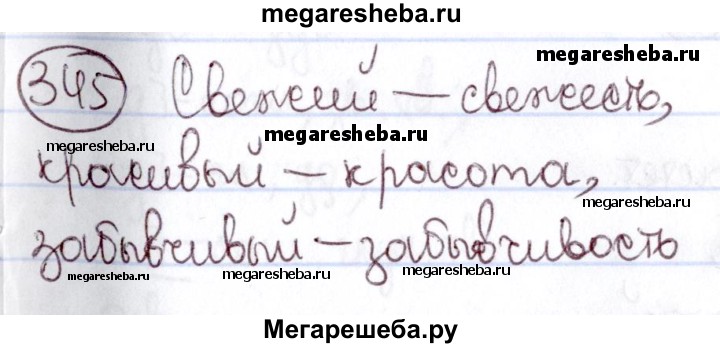 megaresheba.ru
megaresheba.ru
345 Свежий – свежесть,
megaresheba.ru megaresheba.ru
красивый – красота,
megaresheba.ru
забывчивый – забывчивость
megaresheba.ru megaresheba.ru megaresheba.ru
Мегарешеба.ру